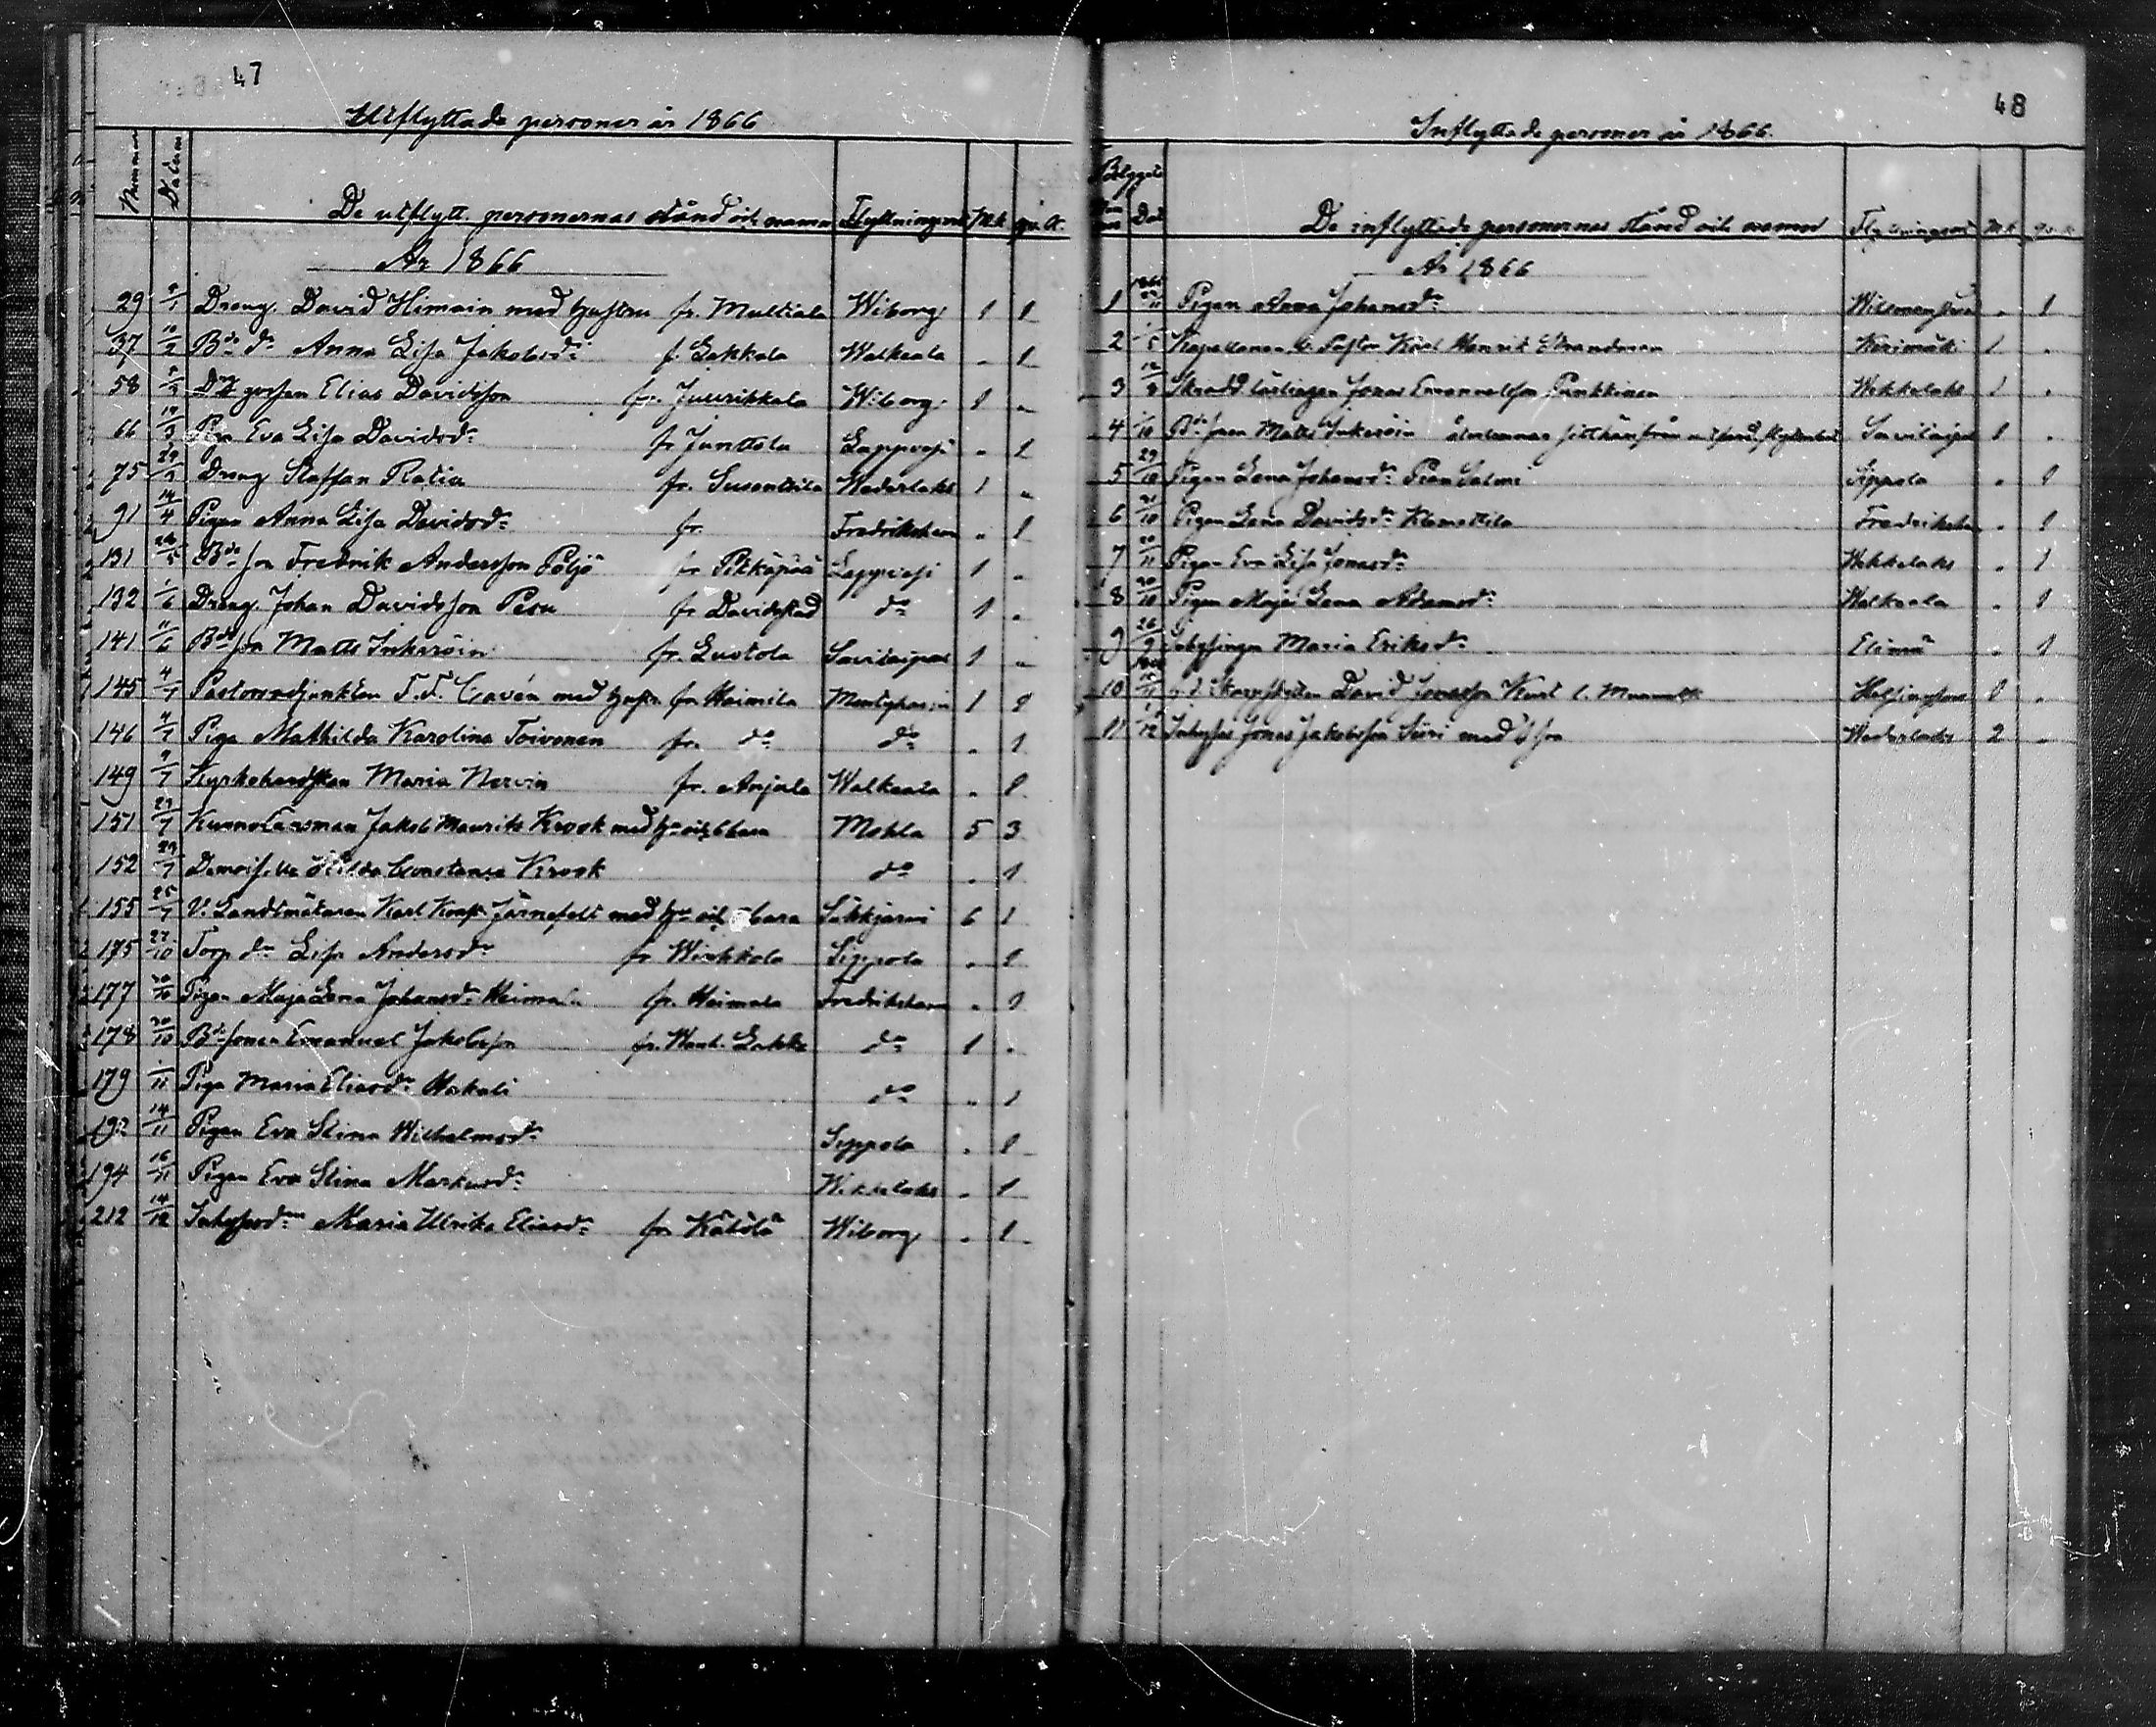 47
Utflyttade personer år 1866
Nummer Datum De utflytt. personernas stånd och namn Flyttningsort Mk qv.k.
År 1866
29 Dreng. David Himain med hustru fr. Multiala Wiborg 1 1
37 10/2 Bde dr Anna Lisa Jakobsdr f. Lakkala Walkeala - 1
58 Drg gossen Elias Davidsson fr. Juurikkala Wiborg 1 -
66 19/3 Pigan Eva Lisa Davidsdr fr Junttola Lappvesi - 1
75 Dreng Staffan Ratia fr. Susenttila Wederlaks 1 -
91 14/4 Pigan Anna Lisa Davidsdr fr. Fredrikshamn - 1
131 26/5 Bde son Fredrik Andersson Pöljö fr Pikkäpää Lappvesi 1 -
132 1/6 Dreng. Johan Davidsson Pesu fr Davidstad do 1 -
141 11/6 Bde son Matts Inkeröin fr. Gustola Savitaipal 1 -
145 4/7 Pastorsadjunkten F. F. Cavén med hustru fr Heimila Mentyharju 1 1
146 4/7 Piga Mathilda Karolina Toivonen fr. do do - 1
149 9/7 Kyrkohendskan Maria Nervin fr. Anjala Walkeala - 1
151 23/7 Kronolänsman Jakob Maurits Krook med hu och barn Mohla 5 3
152 23/7 Demoiselle Hilda Constance Krook do - 1
155 25/7 V. Landtmätaren Karl Konst. Järnefelt med hu och barn Säkkjärvi 6 1
175 27/10 Torp dr Lisa Andersdr fr Wirkkola Sippola - 1
177 Pigan Maja Lena Johansdr Heimala fr. Heimala Fredrikshamn - 1
178 Bde sonen Emanuel Jakobsson fr. Lakka do 1 -
179 Piga Maria Eliasdr Hakali do - 1
192 14/11 Pigan Eva Stina Wilhelmsdr Sippola - 1
194 16/11 Pigan Eva Stina Markusdr Wekkelaks - 1
212 14/12 Inhyses dr Maria Ulrika Eliasdr fr Kätölä Wiborg - 1
48
Inflyttade personer år 1866.
De inflyttade personernas stånd och namn Flyttningsort Mk qv.k.
År 1866
1 Pigan Anna Johansdr - 1
2 Kapellanen V. Pastor Karl Henrik Strandman Kerimäki 1 -
3 12/3 Skräddlärlingen Jonas Emanuelsson Punkkinen Wekkelaks 1 -
4 Bde son Matts Inkeröin återlemnar sitt härifrån Savitaipal 1 -
5 29/10 Pigan Lena Johansdr Sippola - 1
6 31/10 Pigan Lena Davidsdr Klemettila Fredrikshamn - 1
7 20/11 Pigan Eva Lisa Jonasdr Wekkelaks - 1
8 20/10 Pigan Maja Lena Adamsdr Walkeala - 1
9 26/9 Inhysingen Maria Eriksdr Elimä - 1
10 David Jonasson Helsingfors 1 -
11 Inhyses Jonas Jakobsson Siiri med 1 son Wederlaks 2 -